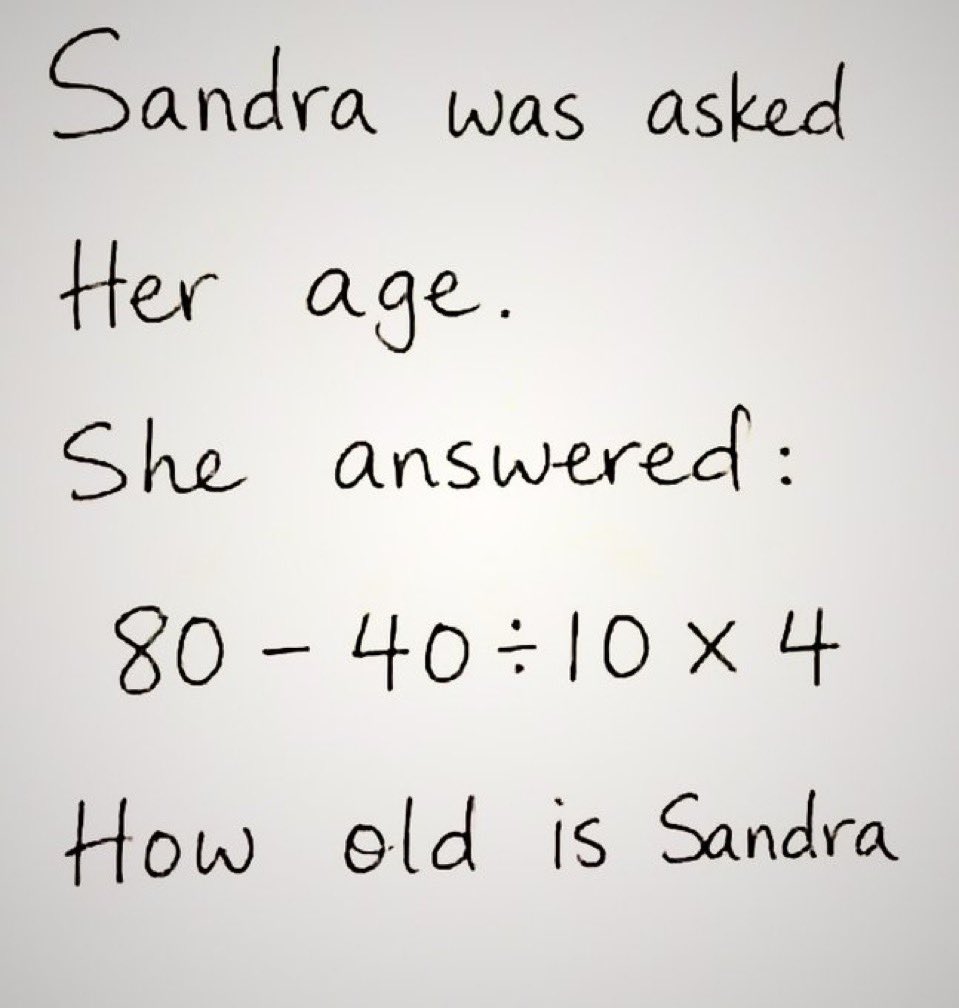 Sandra was asked
Her age.
She answered:
80 - 40 ÷ 10 × 4
How old is Sandra